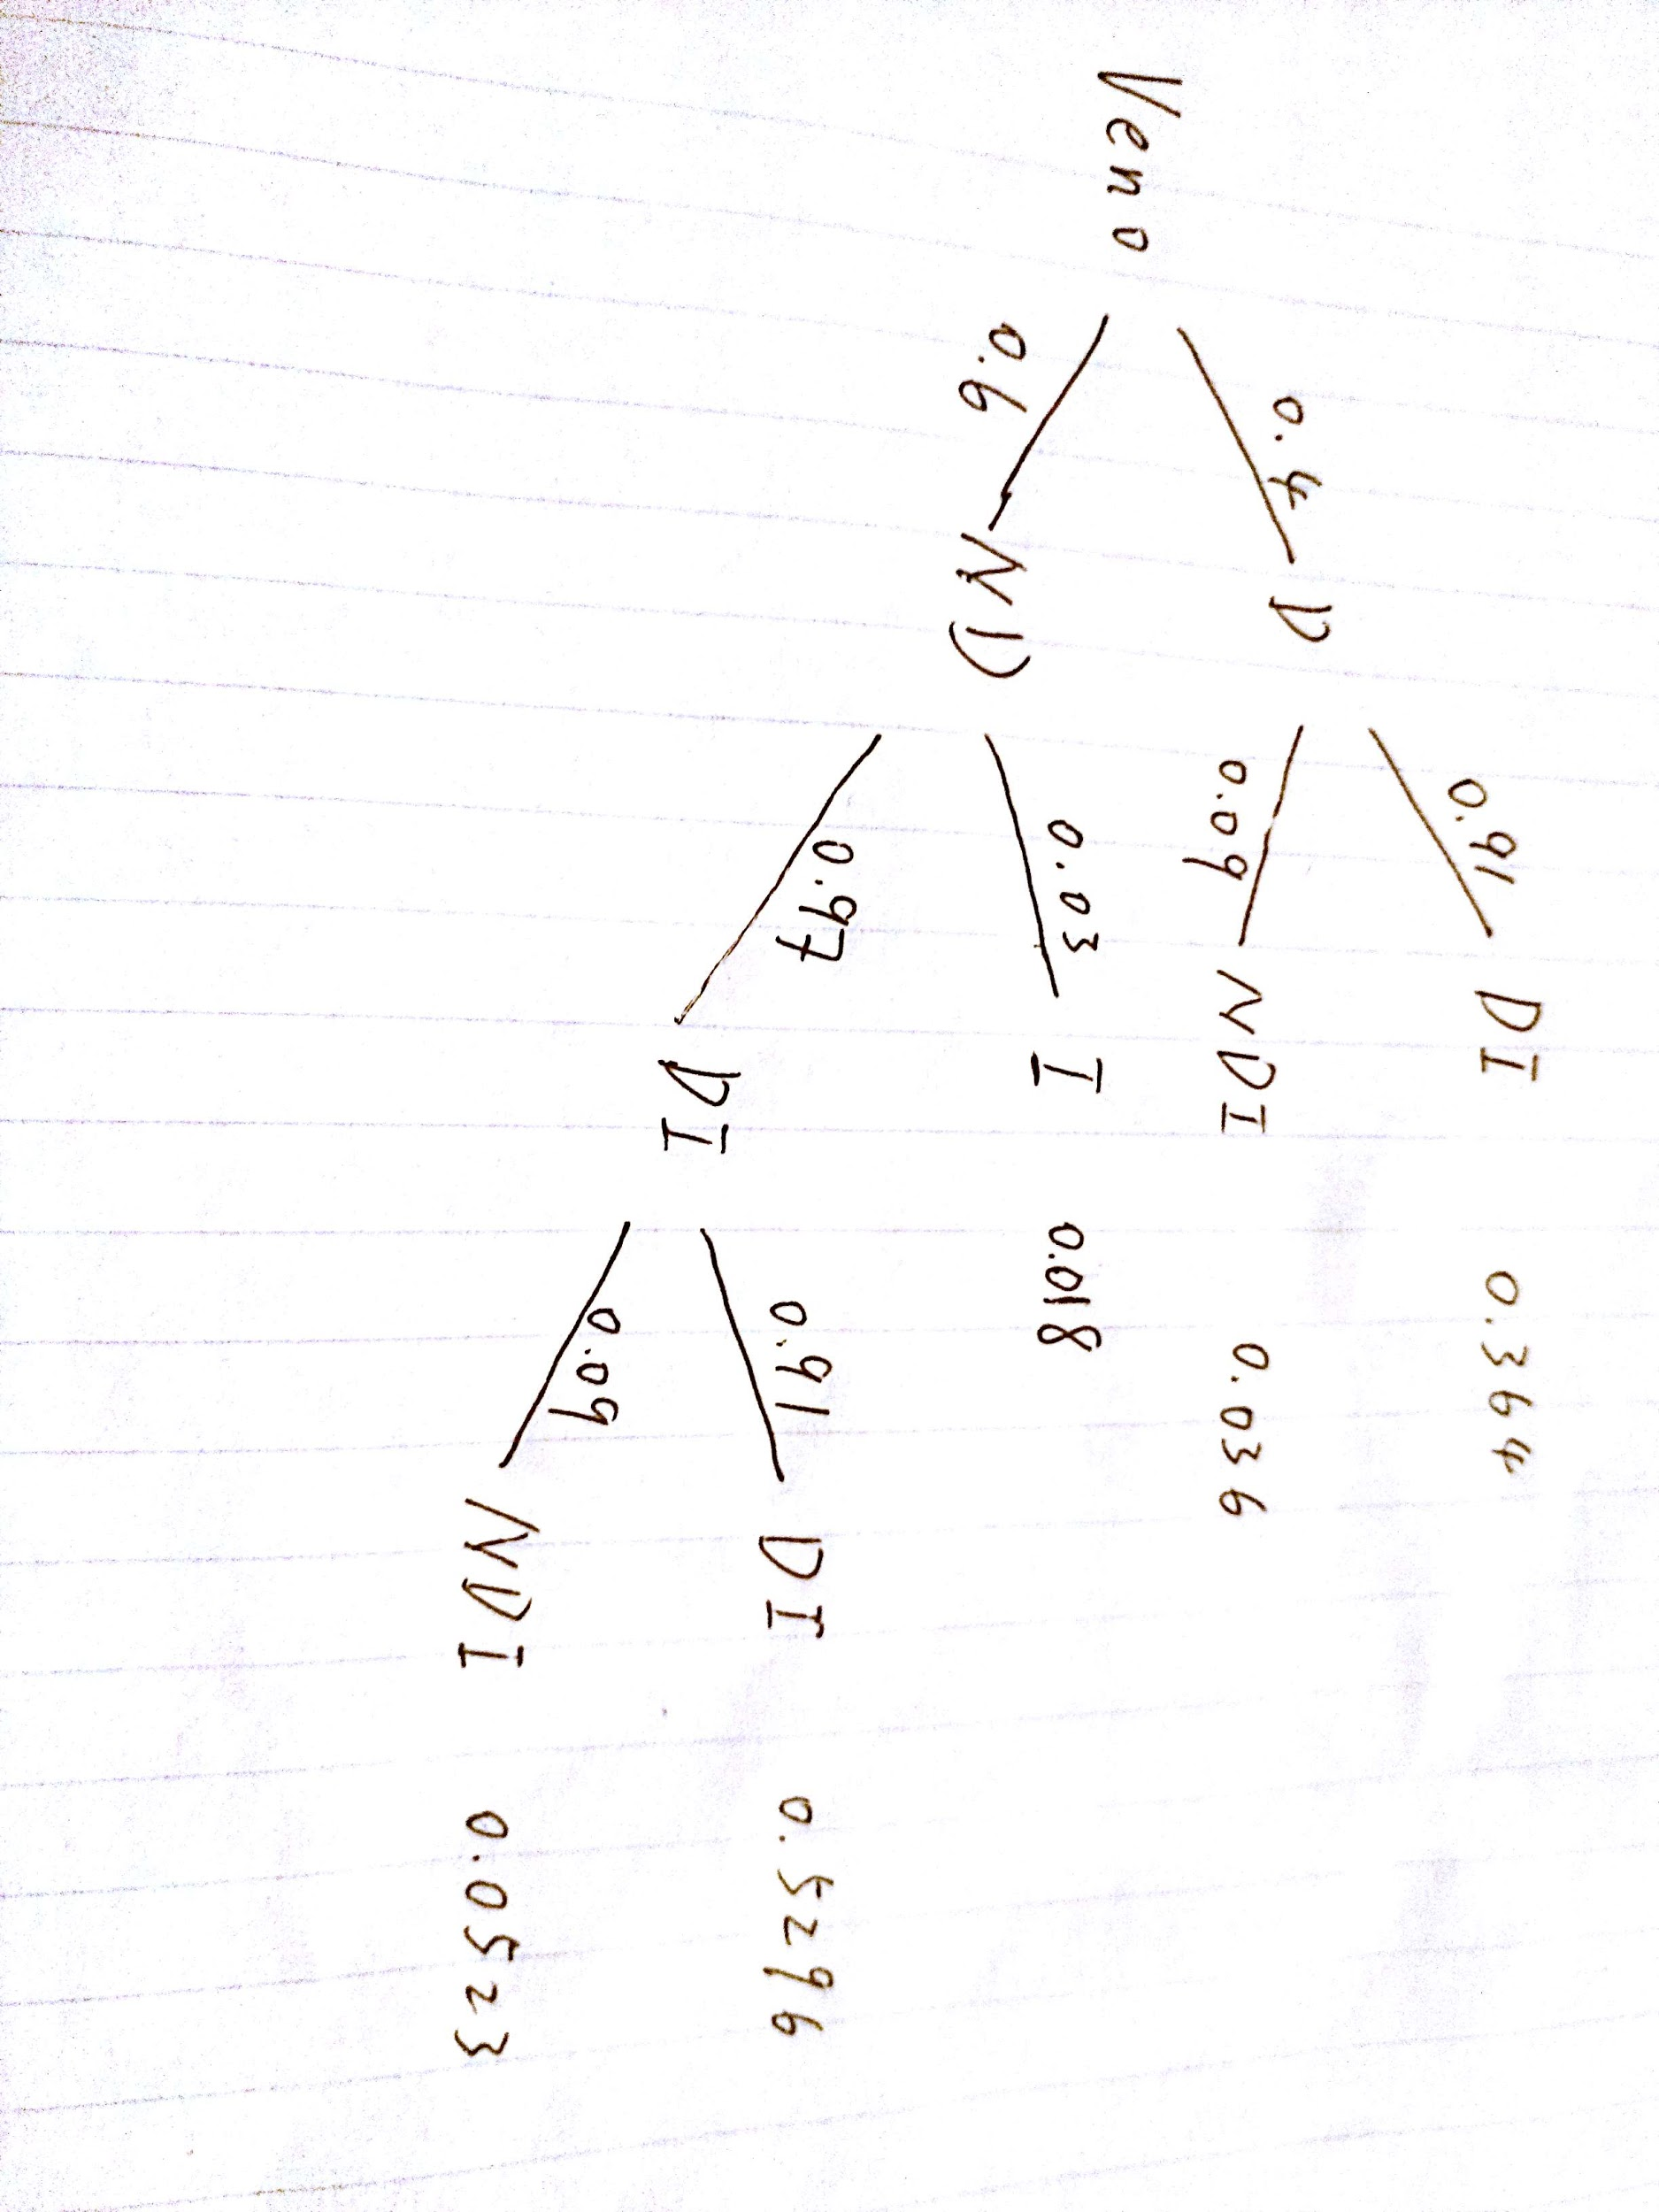 Veno
0.4
D
0.91
DI
0.364
0.09
NDI
0.036
0.6
ND
0.03
I
0.018
0.97
DI
0.91
DI
0.5296
0.09
NDI
0.0523